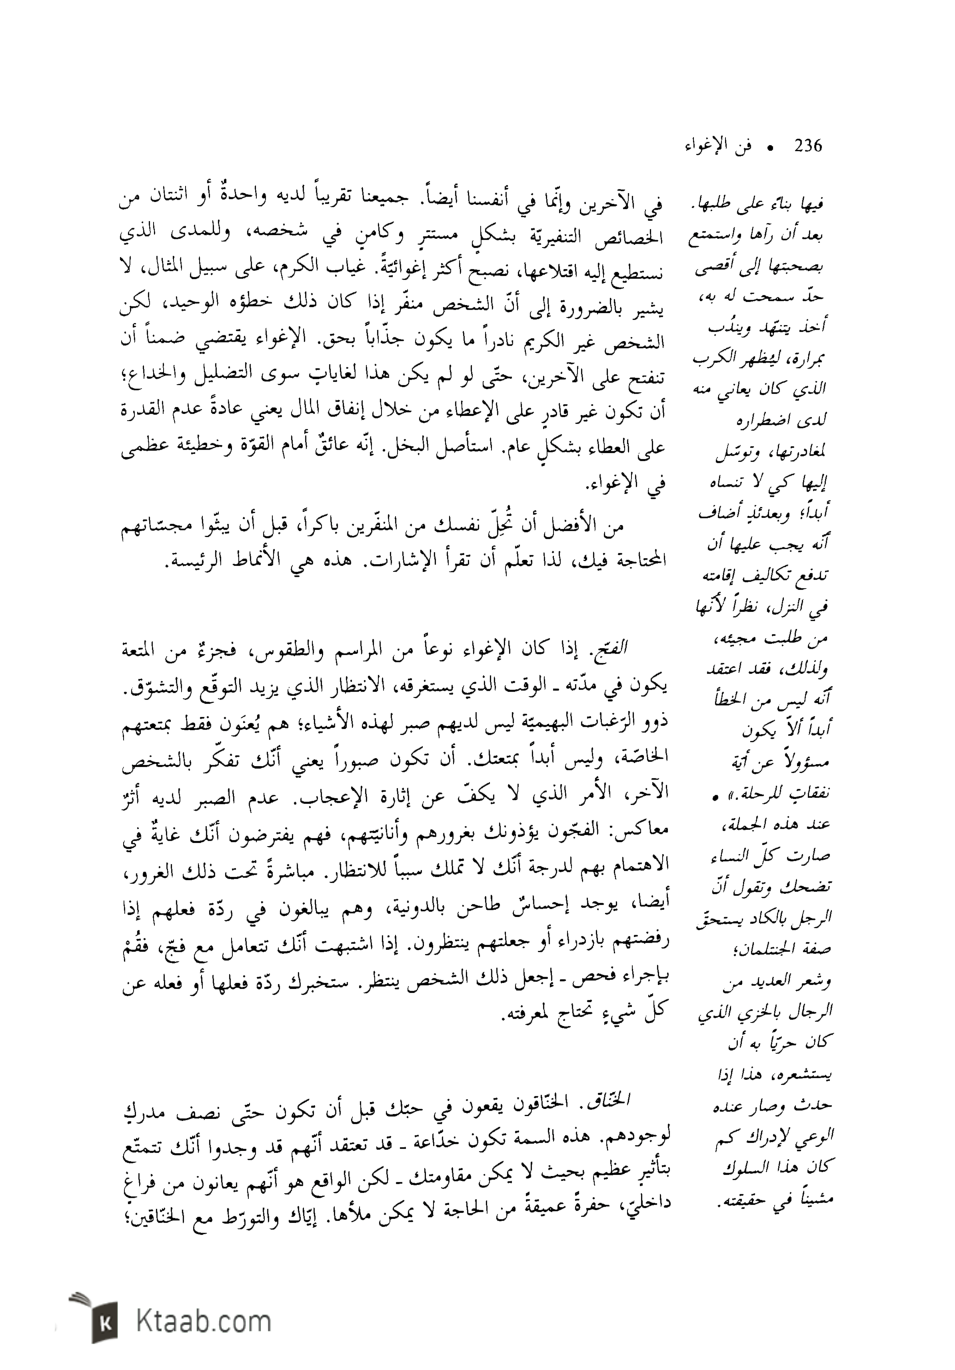 236 • فن الإغواء
في الآخرين وإنّما في أنفسنا أيضاً. جميعنا تقريباً لديه واحدةٌ أو اثنتان من
الخصائص التنفيريّة بشكلٍ مستترٍ وكامنٍ في شخصه، وللمدى الذي
نستطيع إليه اقتلاعها، نصبح أكثر إغوائيّةً. غياب الكرم، على سبيل المثال، لا
يشير بالضرورة إلى أنّ الشخص منفّر إذا كان ذلك خطؤه الوحيد، لكن
الشخص غير الكريم نادراً ما يكون جذّاباً بحق. الإغواء يقتضي ضمناً أن
تنفتح على الآخرين، حتّى لو لم يكن هذا لغاياتٍ سوى التضليل والخداع؛
أن تكون غير قادرٍ على الإعطاء من خلال إنفاق المال يعني عادةً عدم القدرة
على العطاء بشكلٍ عام. استأصل البخل. إنّه عائقٌ أمام القوّة وخطيئة عظمى
في الإغواء.
من الأفضل أن تُحِلّ نفسك من المنفّرين باكراً، قبل أن يبثّوا مجسّاتهم
المحتاجة فيك، لذا تعلّم أن تقرأ الإشارات. هذه هي الأنماط الرئيسة.
الفجّ. إذا كان الإغواء نوعاً من المراسم والطقوس، فجزءٌ من المتعة
يكون في مدّته ـ الوقت الذي يستغرقه، الانتظار الذي يزيد التوقّع والتشوّق.
ذوو الرّغبات البهيميّة ليس لديهم صبر لهذه الأشياء؛ هم يُعنَون فقط بمتعتهم
الخاصّة، وليس أبداً بمتعتك. أن تكون صبوراً يعني أنّك تفكّر بالشخص
الآخر، الأمر الذي لا يكفّ عن إثارة الإعجاب. عدم الصبر لديه أثرٌ
معاكس: الفجّون يؤذونك بغرورهم وأنانيّتهم، فهم يفترضون أنّك غايةٌ في
الاهتمام بهم لدرجة أنّك لا تملك سبباً للانتظار. مباشرةً تحت ذلك الغرور،
أيضا، يوجد إحساسٌ طاحن بالدونية، وهم يبالغون في ردّة فعلهم إذا
رفضتهم بازدراء أو جعلتهم ينتظرون. إذا اشتبهت أنّك تتعامل مع فجّ، فقُمْ
بإجراء فحص ـ إجعل ذلك الشخص ينتظر. ستخبرك ردّة فعلها أو فعله عن
كلّ شيءٍ تحتاج لمعرفته.
الخنّاق. الخنّاقون يقعون في حبّك قبل أن تكون حتّى نصف مدركٍ
لوجودهم. هذه السمة تكون خدّاعة ـ قد تعتقد أنّهم قد وجدوا أنّك تتمتّع
بتأثيرٍ عظيم بحيث لا يمكن مقاومتك ـ لكن الواقع هو أنّهم يعانون من فراغٍ
داخليّ، حفرةً عميقةً من الحاجة لا يمكن ملأها. إيّاك والتورّط مع الخنّاقين؛
فيها بناءً على طلبها.
بعد أن رآها واستمتع
بصحبتها إلى أقصى
حدّ سمحت له به،
أخذ يتنهّد ويندُب
بمرارة، ليُظهر الكرب
الذي كان يعاني منه
لدى اضطراره
لمغادرتها، وتوسّل
إليها كي لا تنساه
أبداً؛ وبعدئذٍ أضاف
أنّه يجب عليها أن
تدفع تكاليف إقامته
في النزل، نظراً لأنّها
من طلبت مجيئه،
ولذلك، فقد اعتقد
أنّه ليس من الخطأ
أبداً ألاّ يكون
مسؤولاً عن أيّة
نفقاتٍ للرحلة.» •
عند هذه الجملة،
صارت كلّ النساء
تضحك وتقول أنّ
الرجل بالكاد يستحقّ
صفة الجنتلمان؛
وشعر العديد من
الرجال بالخزي الذي
كان حريّاً به أن
يستشعره، هذا إذا
حدث وصار عنده
الوعي لإدراك كم
كان هذا السلوك
مشيناً في حقيقته.
Ktaab.com